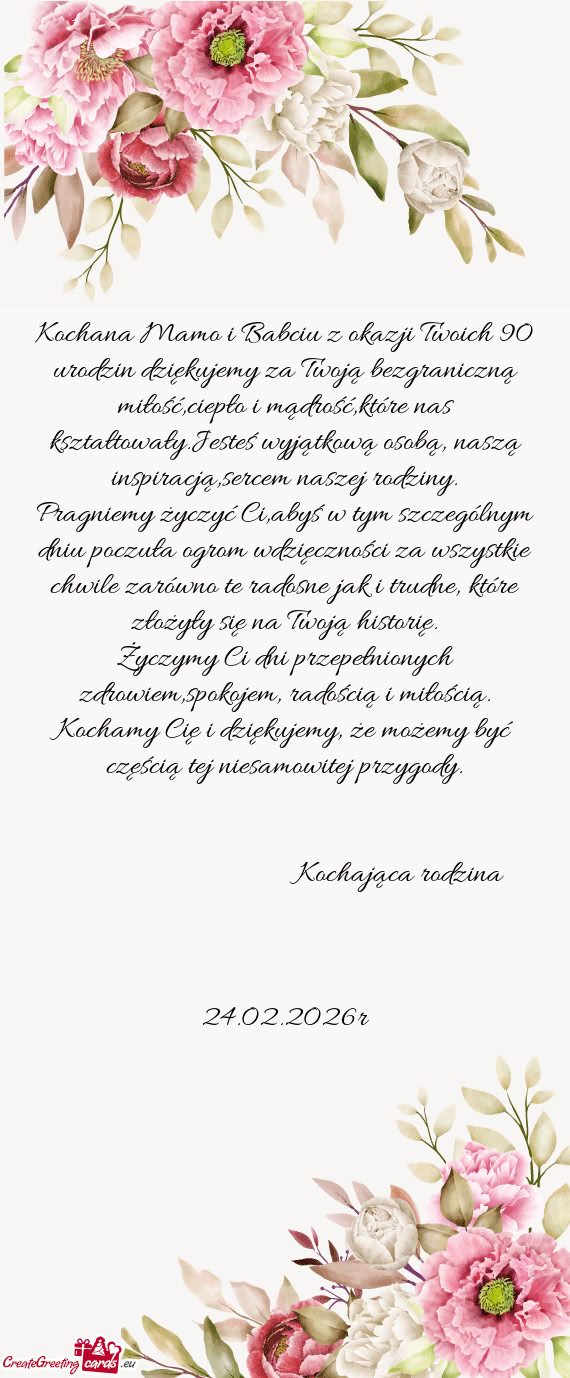 Kochana Mamo i Babciu z okazji Twoich 90
urodzin dziękujemy za Twoją bezgraniczną
miłość,ciepło i mądrość,które nas
kształtowały.Jesteś wyjątkową osobą, naszą
inspiracją,sercem naszej rodziny.
Pragniemy życzyć Ci,abyś w tym szczególnym
dniu poczuła ogrom wdzięczności za wszystkie
chwile zarówno te radosne jak i trudne, które
złożyły się na Twoją historię.
Życzymy Ci dni przepełnionych
zdrowiem,spokojem, radością i miłością.
Kochamy Cię i dziękujemy, że możemy być
częścią tej niesamowitej przygody.
Kochająca rodzina
24.02.2026r
CreateGreeting cards .eu